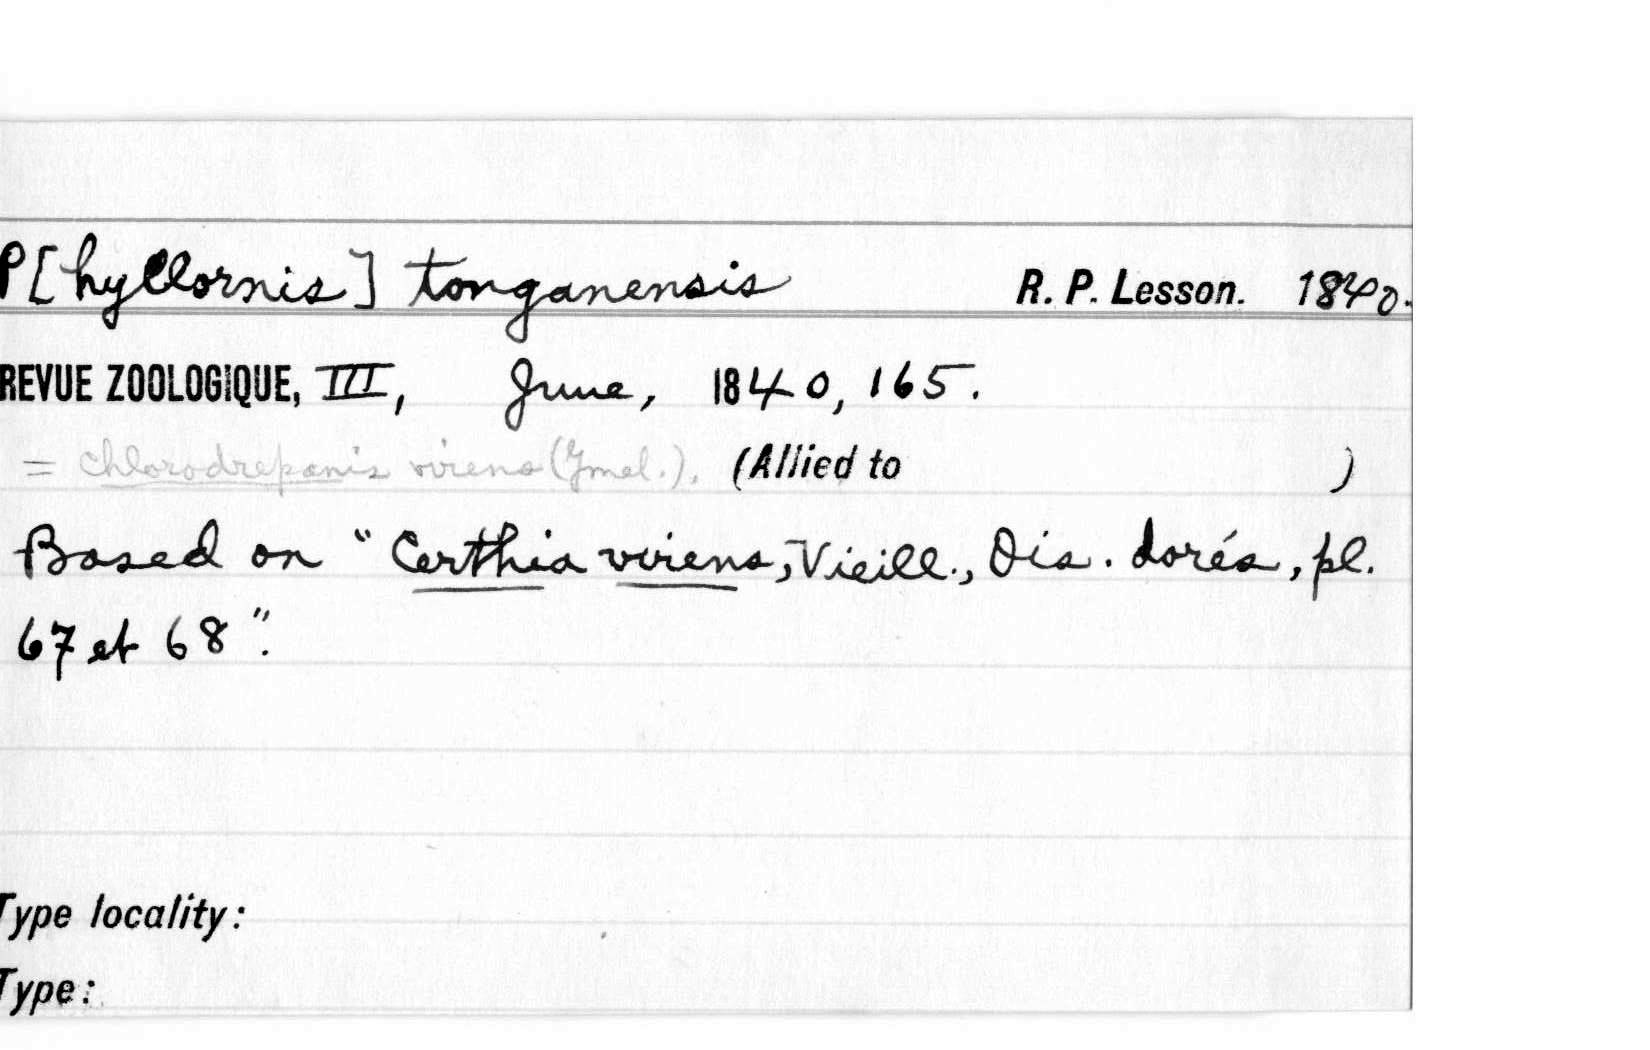 P[hyllornis] tonganensis R. P. Lesson. 1840.
REVUE ZOOLOGIQUE, III, June, 1840, 165.
= Chlorodrepanis virens (Gmel.). (Allied to )
Based on "Certhia virens, Vieill., Ois. dorés, pl.
67 et 68".
Type locality:
Type: